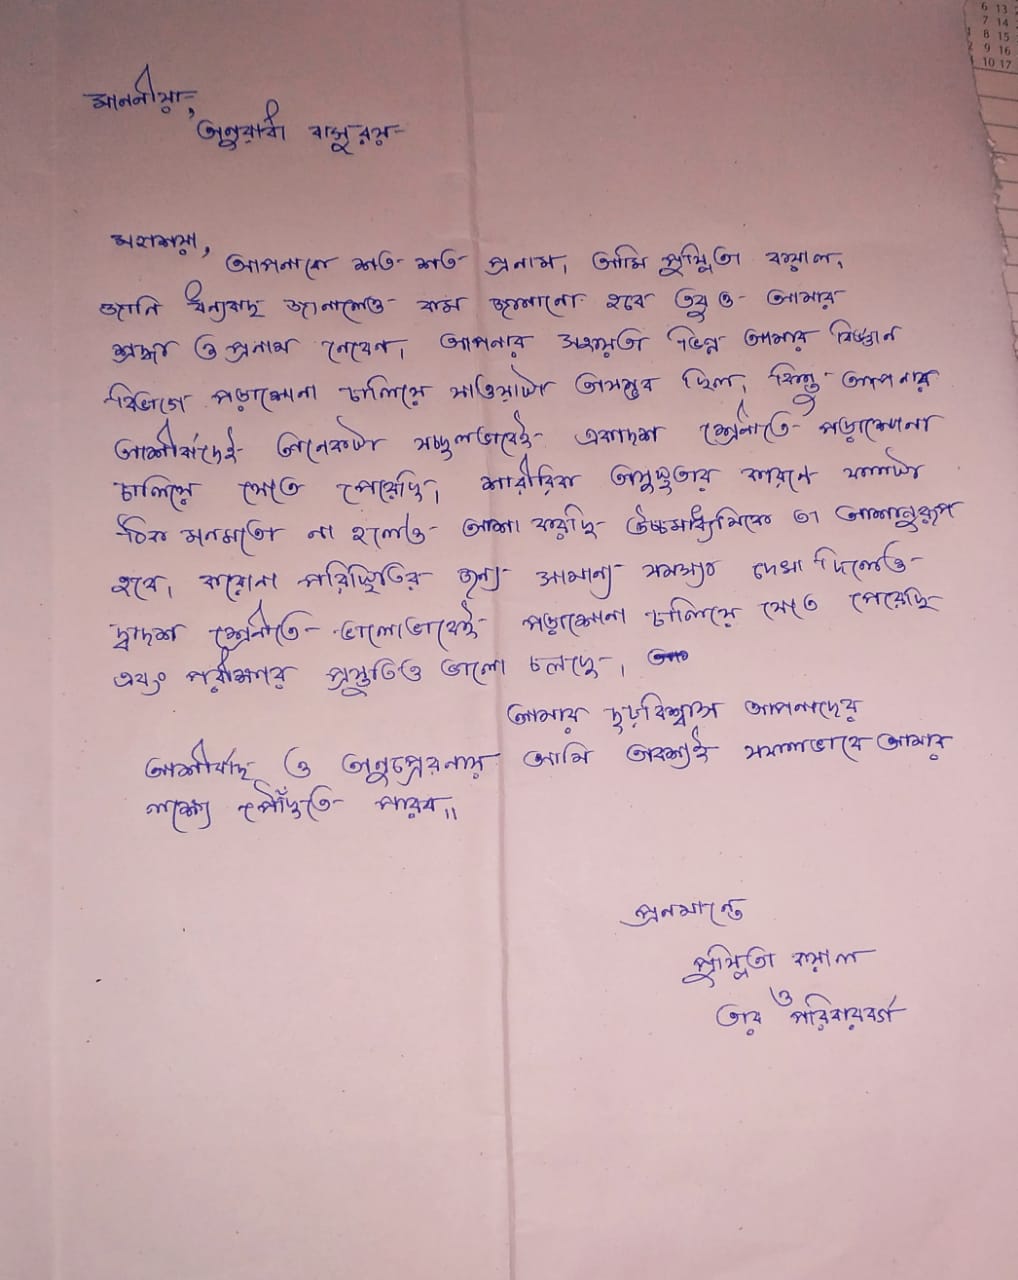 6 13
7 14
8 15
9 16
10 17
মাননীয়া,
মহাশয়া,
আপনাকে শত শত প্রনাম, আমি পুষ্মিতা কয়াল,
জানি ধন্যবাদ জানালেও কম জানানো হবে তবু ও আমার
শ্রদ্ধা ও প্রনাম নেবেন। আপনার সহায়তা ভিন্ন আমার বিজ্ঞান
বিভাগে পড়াশোনা চালিয়ে যাওয়াটা অসম্ভব ছিল, কিন্তু আপনার
আশীর্বাদেই অনেকটা সচ্ছলভাবেই একাদশ শ্রেনীতে পড়াশোনা
চালিয়ে যেতে পেরেছি, শারীরিক অসুস্থতার কারনে ফলটা
ঠিক মনমতো না হলেও আশা করছি উচ্চমাধ্যমিকে তা আশানুরূপ
হবে, করোনা পরিস্থিতির জন্য সামান্য সমস্যার দেখা দিলেও
দ্বাদশ শ্রেনীতে ভালোভাবেই পড়াশোনা চালিয়ে যেতে পেরেছি
এবং পরীক্ষার প্রস্তুতিও ভালো চলছে,
আমার দৃঢ়বিশ্বাস আপনাদের
আশীর্বাদ ও অনুপ্রেরনায় আমি অবশ্যই সফলভাবে আমার
লক্ষ্যে পৌঁছতে পারব।।
প্রনমান্তে
পুষ্মিতা কয়াল
ও
তার পরিবারবর্গ